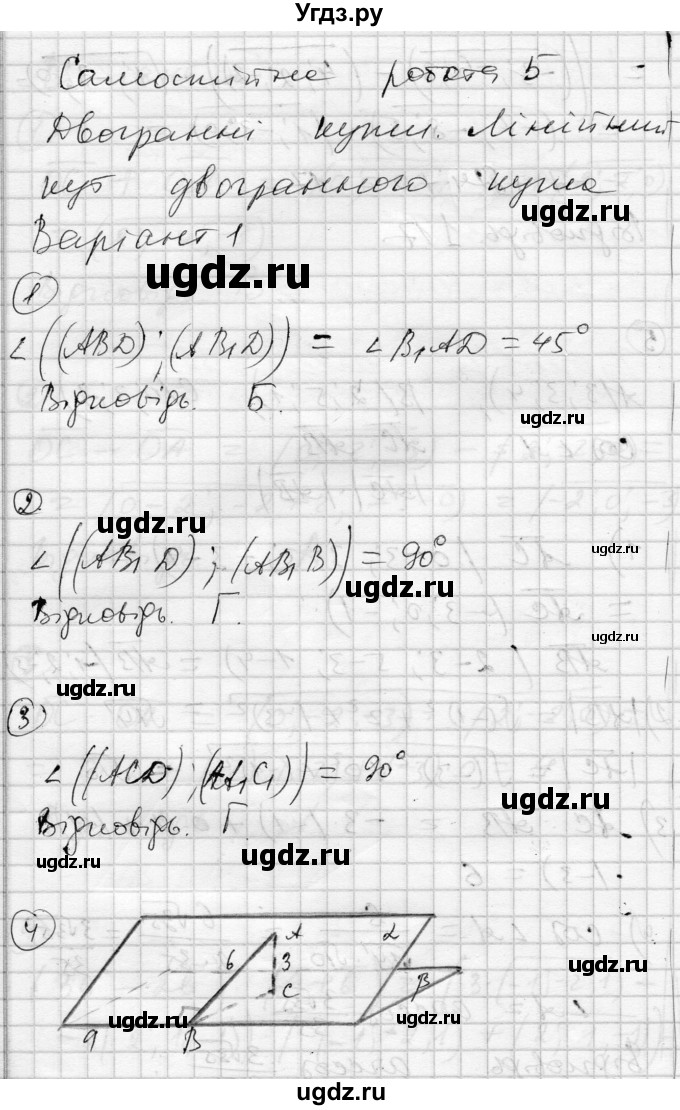 Угдз.ру
Самостійна робота 5
Двогранні кути. Лінійний
кут двогранного кута
ugdz.ru
Варіант 1
ugdz.ru
1
∠((ABD);(AB₁D)) = ∠B₁AD = 45°
Відповідь. Б.
ugdz.ru
2
ugdz.ru
∠((AB₁D);(AB₁B)) = 90°
ugdz.ru
ugdz.ru
Відповідь. Г.
ugdz.ru
ugdz.ru
3
∠((ACD);(AA₁C₁)) = 90°
ugdz.ru
Відповідь. Г.
ugdz.ru
ugdz.ru
4
A
α
6
3
C
β
ugdz.ru
ugdz.ru
ugdz.ru
a
B
ugdz.ru